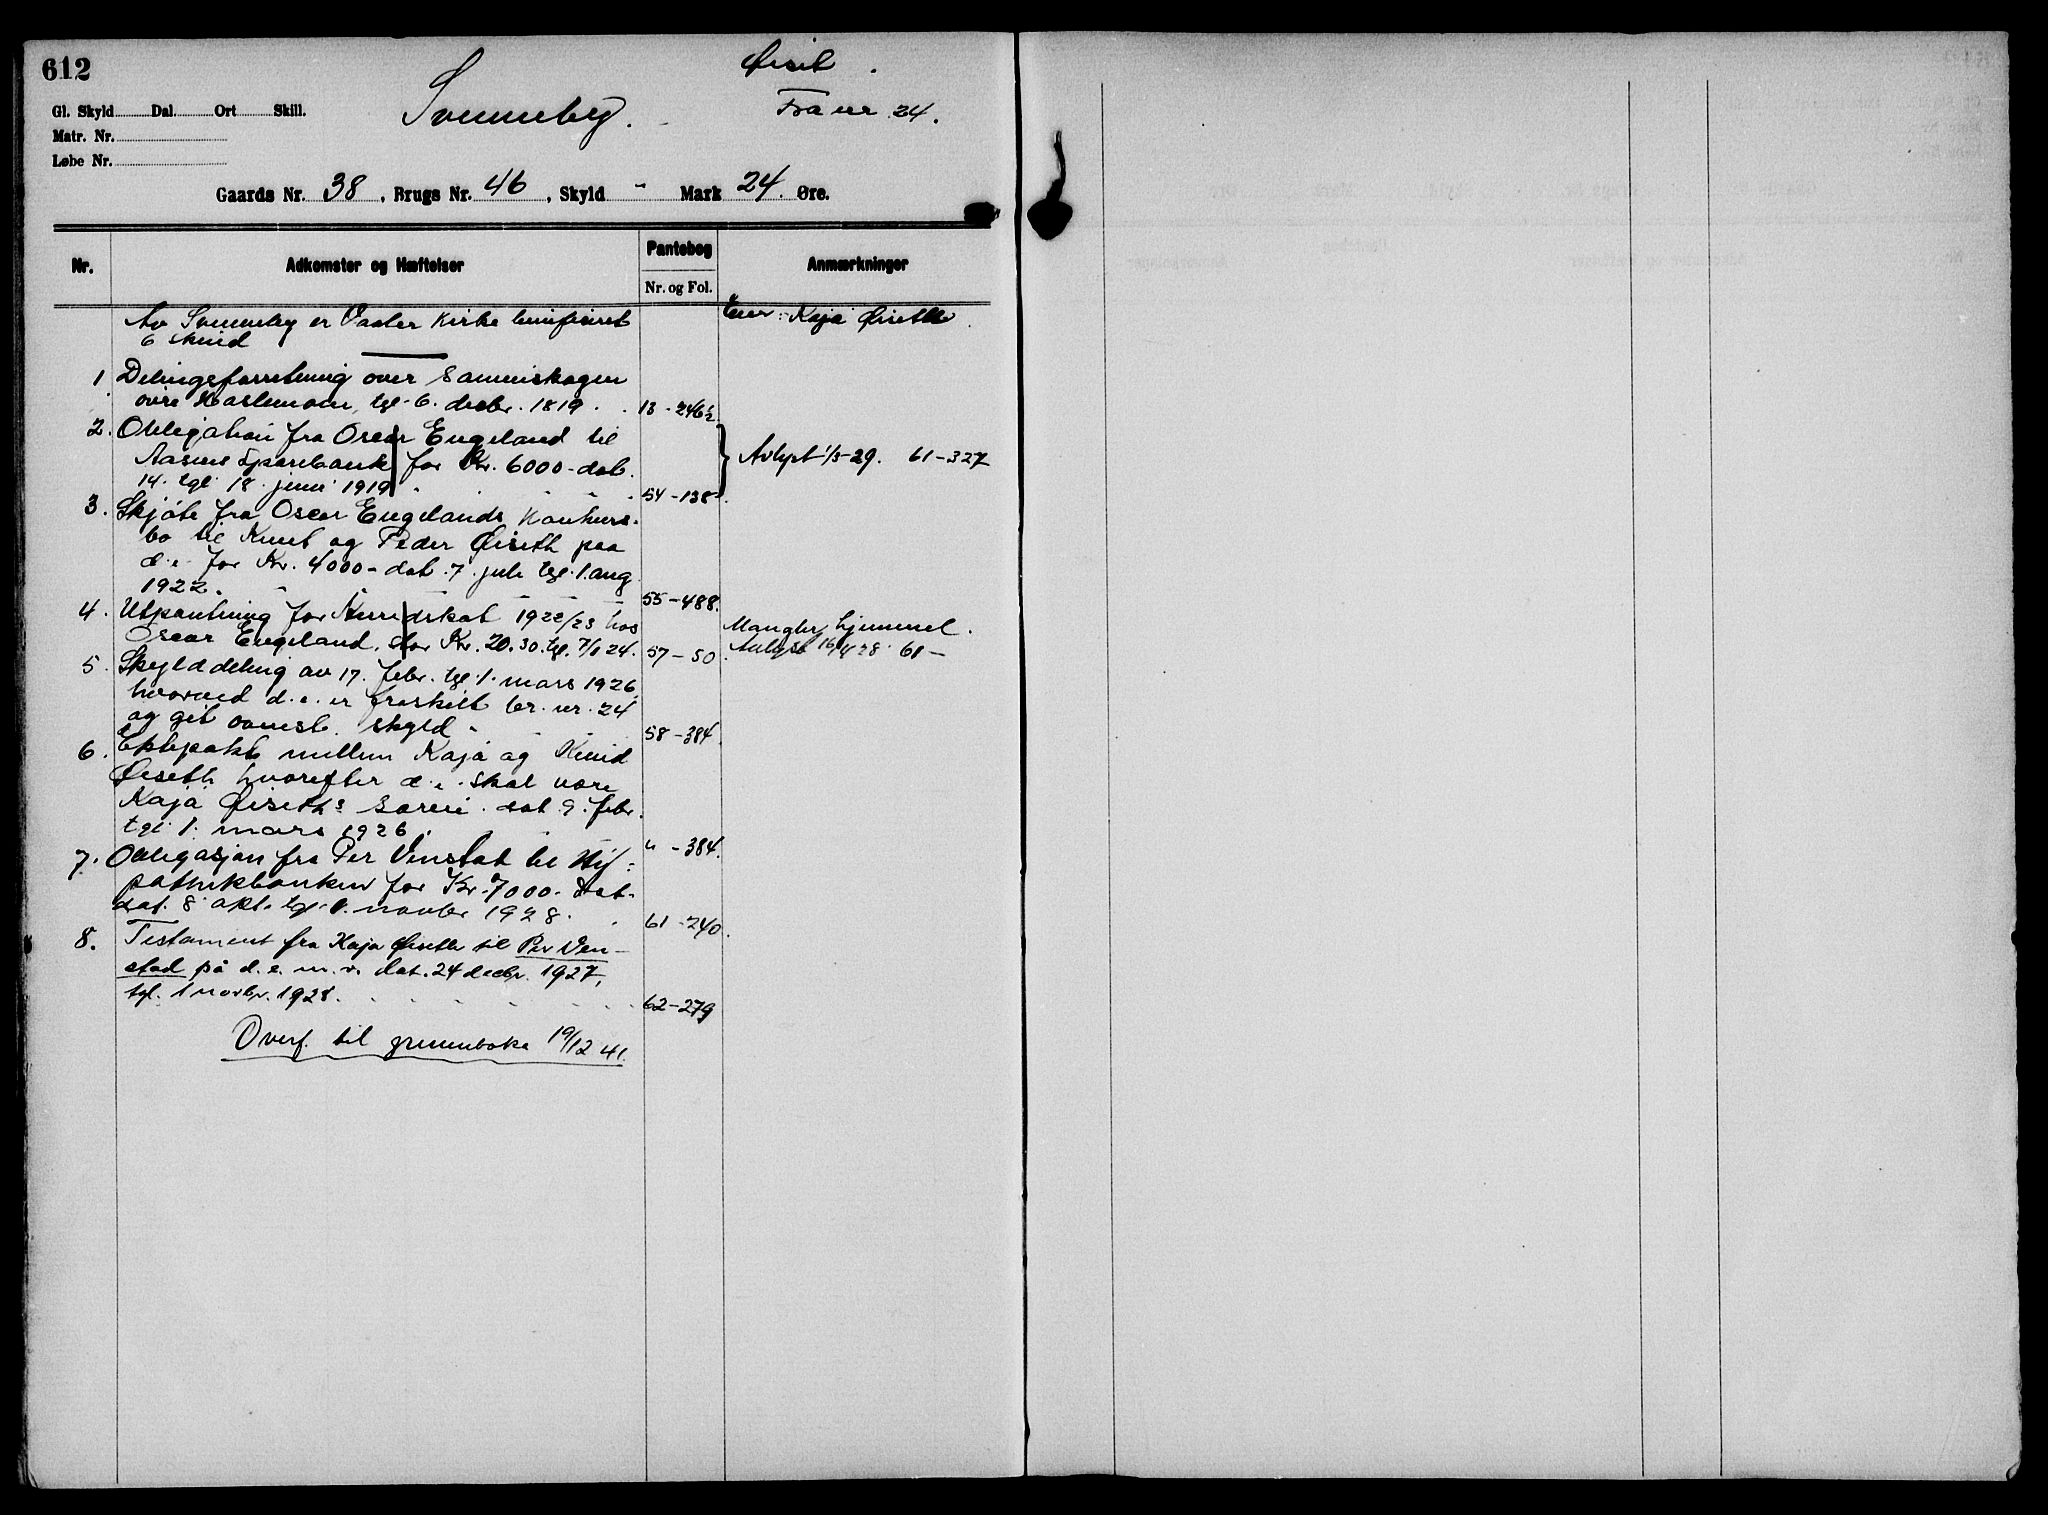 612
Øiset.
Gl. Skyld Dal. Ort Skill.
Svenneby.
Fra nr 24.
Matr. Nr.
Løbe Nr.
Gaards Nr. 38, Brugs Nr. 46, Skyld " Mark 24. Øre.
Nr. Adkomster og Hæftelser Pantebog Nr. og Fol. Anmærkninger
Av Svenneby er Vaaler Kirke benificeret
6 skind
Eier: Kaja Øiseth.
1. Delingsforretning over Sameiskogen
øvre Haslemoen, tgl. 6. decbr. 1819. 13-246½
2. Obligation fra Oscar Engeland til
Aasnes Sparebank for Kr. 6000- dat.
14. tgl. 18. juni 1919. 54-138.
Avlyst 1/5-29. 61-327
3. Skjøte fra Oscar Engelands konkurs-
bo til Knut og Peder Øiseth paa
d.e. for Kr. 4000- dat. 7. juli tgl. 1. aug
1922. 55-488.
4. Utpantning for Herredskat 1922/23 hos
Oscar Engeland, stor Kr. 20.30. tgl. 7/1 24. 57-50.
Mangler hjemmel.
Avlyst 16/4 28 61-
5. Skylddeling av 17. febr. tgl. 1. mars 1926,
hvorved d.e. er fraskilt br. nr. 24
og git ovenst. skyld. 58-384.
6. Ektepakt mellem Kaja og Knud
Øiseth hvorefter d.e. skal være
Kaja Øiseths særeie. dat. 9. febr.
tgl. 1. mars 1926. " -384.
7. Obligasjon fra Per Venstat til Hy-
pothekbanken for Kr. 7000.
dat. 8 okt. tgl. 1. novbr 1928. 61-240.
8. Testament fra Kaja Øiseth til Per Ven-
stad på d.e. m.v. dat. 24 decbr. 1927,
tgl. 1 novbr. 1928. 62-279
Overf. til grunnboka 19/12 41.